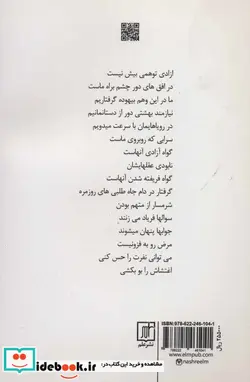 ازادی توهمی بیش نیست
در افق های دور چشم براه ماست
ما در این وهم بیهوده گرفتاریم
نیازمند بهشتی دور از دستانمانیم
در رویاهایمان با سرعت میدویم
سرابی که روبروی ماست
گواه آزادی آنهاست
نابودی عقلهایشان
گواه فریفته شدن آنهاست
گرفتار در دام جاه طلبی های روزمره
شرمسار از متهم بودن
سوالها فریاد می زنند
جوابها پنهان میشوند
مرض رو به فزونیست
می توانی نفرت را حس کنی
اغتشاش را بو بکشی
نشر علم
www.elmpub.com
nashreelm
ISBN: 978-622-246-104-1
ایده بوک
idebook.ir
مشاهده و خرید این کتاب در: